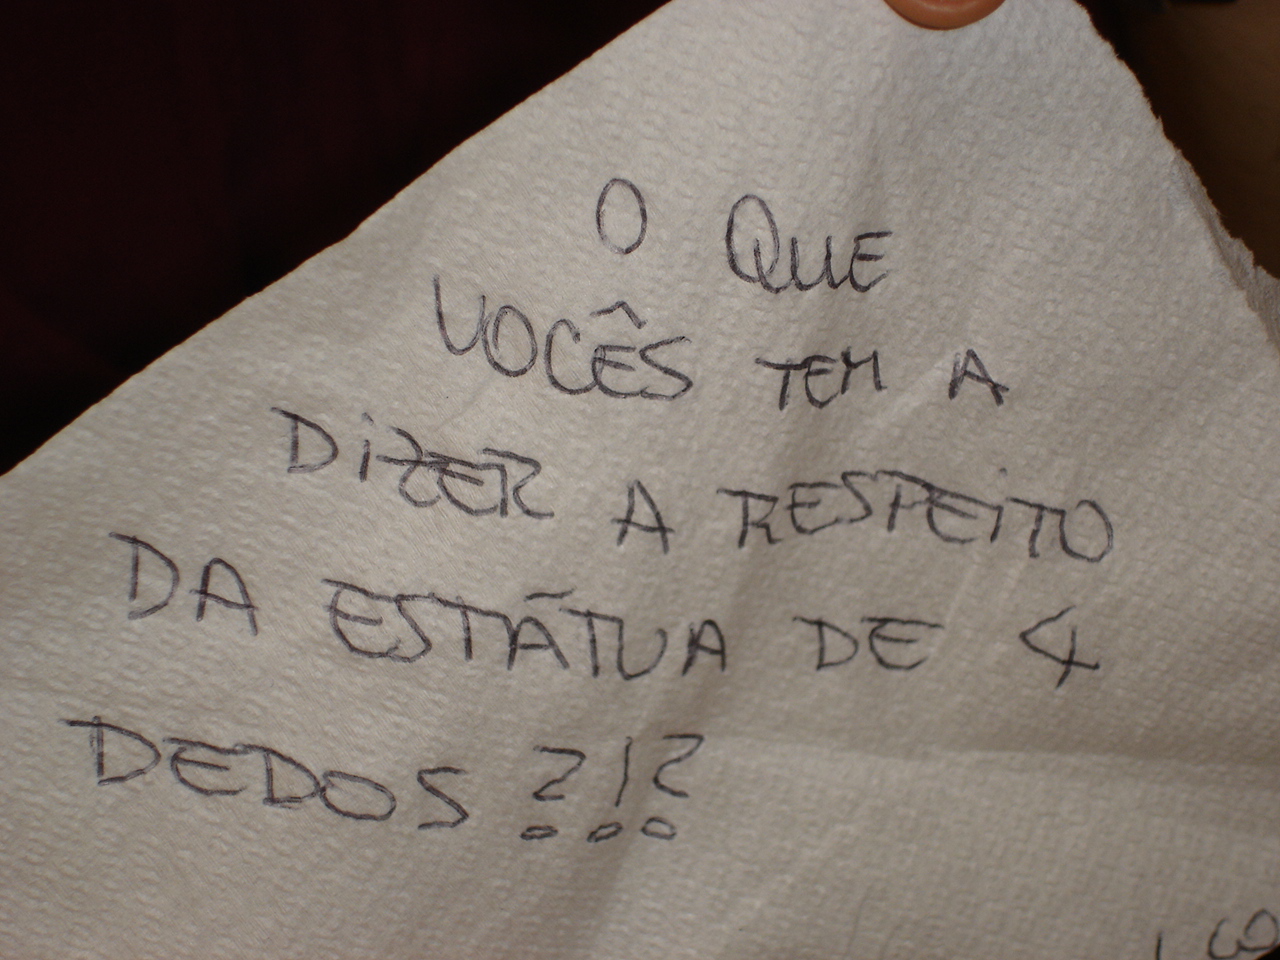 O QUE
VOCÊS TEM A
DiZER A RESPEiTO
DA ESTÁTUA DE 4
DEDOS ?!?